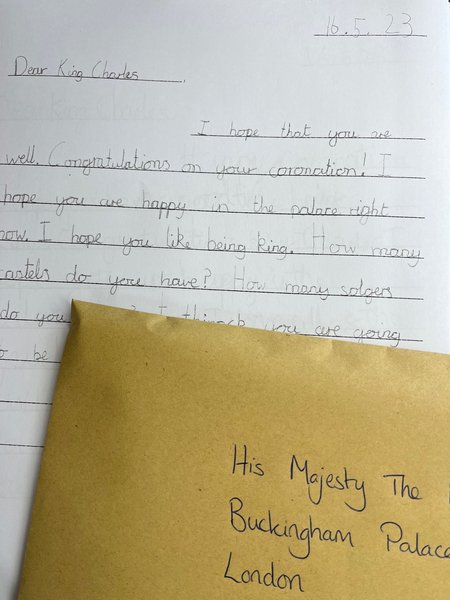 16.5.23
Dear King Charles
I hope that you are
well. Congratulations on your coronation! I
hope you are happy in the palace right
now. I hope you like being king. How many
castels do you have? How many solgers
do you I you are going
be
His Majesty The
Buckingham Palace
London